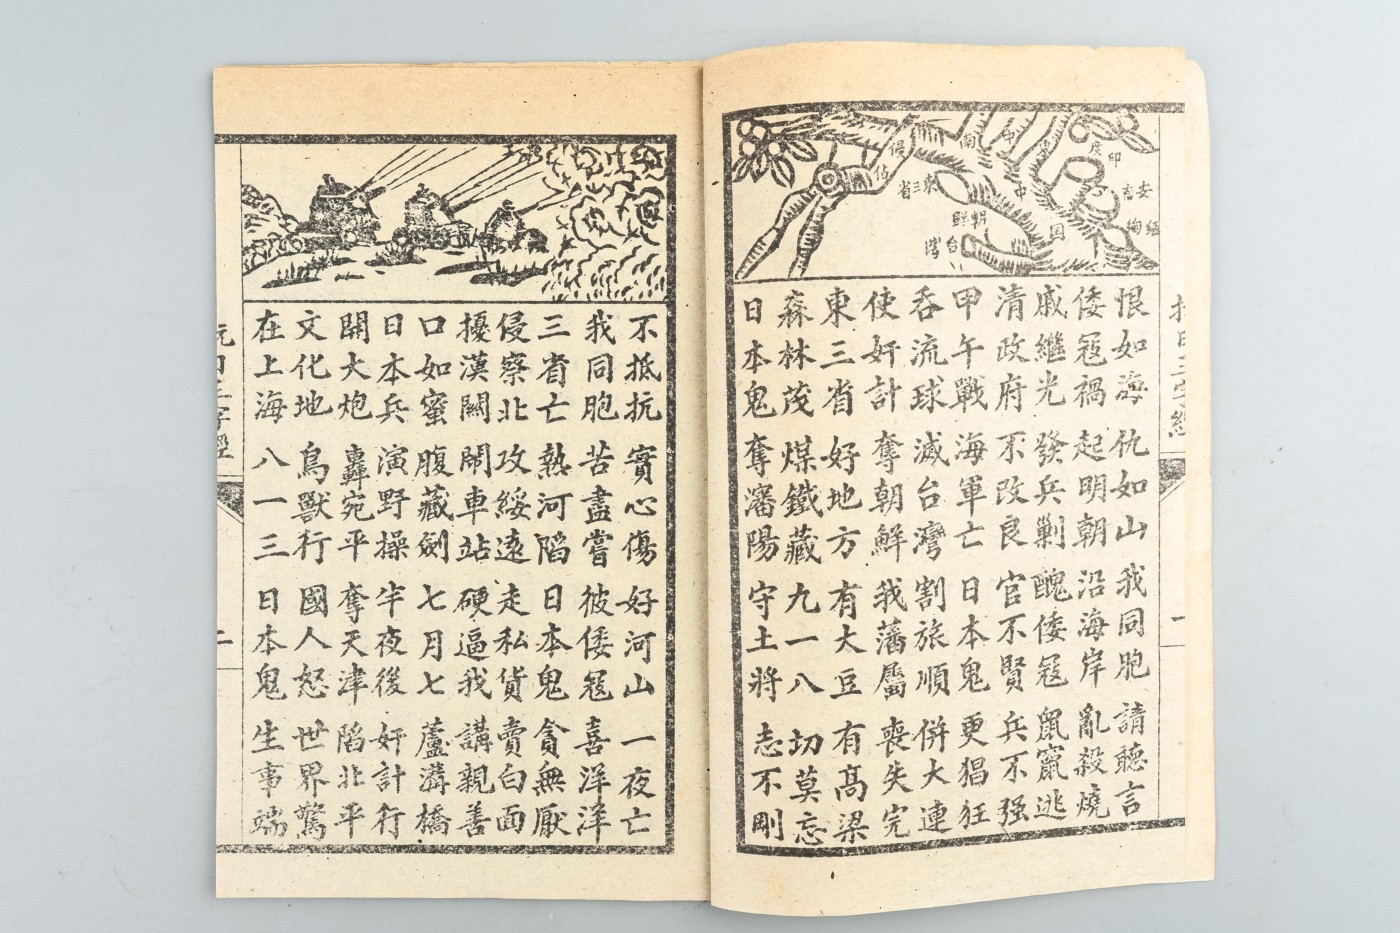 抗日三字經
一
印度
緬甸
中国
朝鮮
台灣
東三省
侵佔
恨如海 仇如山 我同胞 請聽言
倭寇禍 起明朝 沿海岸 亂殺燒
戚繼光 發兵剿 醜倭寇 鼠竄逃
清政府 不改良 官不賢 兵不强
甲午戰 海軍亡 日本鬼 更猖狂
吞流球 滅台灣 割旅順 併大連
使奸計 奪朝鮮 我藩屬 喪失完
東三省 好地方 有大豆 有高梁
森林茂 煤鐵藏 九一八 切莫忘
日本鬼 奪瀋陽 守土將 志不剛
不抵抗 實心傷 好河山 一夜亡
我同胞 苦盡嘗 彼倭寇 喜洋洋
三省亡 熱河陷 日本鬼 貪無厭
侵察北 攻綏遠 走私貨 賣白面
擾漢關 鬧車站 硬逼我 講親善
口如蜜 腹藏劍 七月七 蘆溝橋
日本兵 演野操 半夜後 奸計行
開大炮 轟宛平 奪天津 陷北平
文化地 鳥獸行 國人怒 世界驚
在上海 八一三 日本鬼 生事端
抗日三字經
二